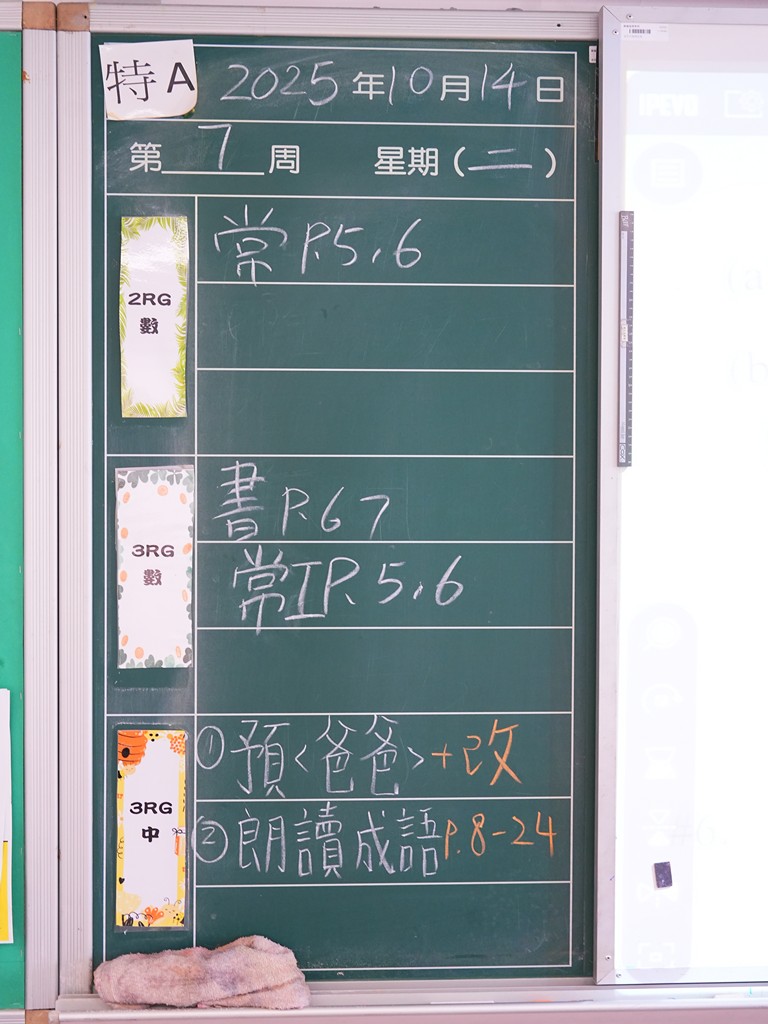 特A 2025年10月14日
第 7 周 星期(二)
2RG
數
常 P.5,6
3RG
數
書 P.67
常I P.5,6
3RG
中
①預<爸爸>+改
②朗讀成語p.8-24